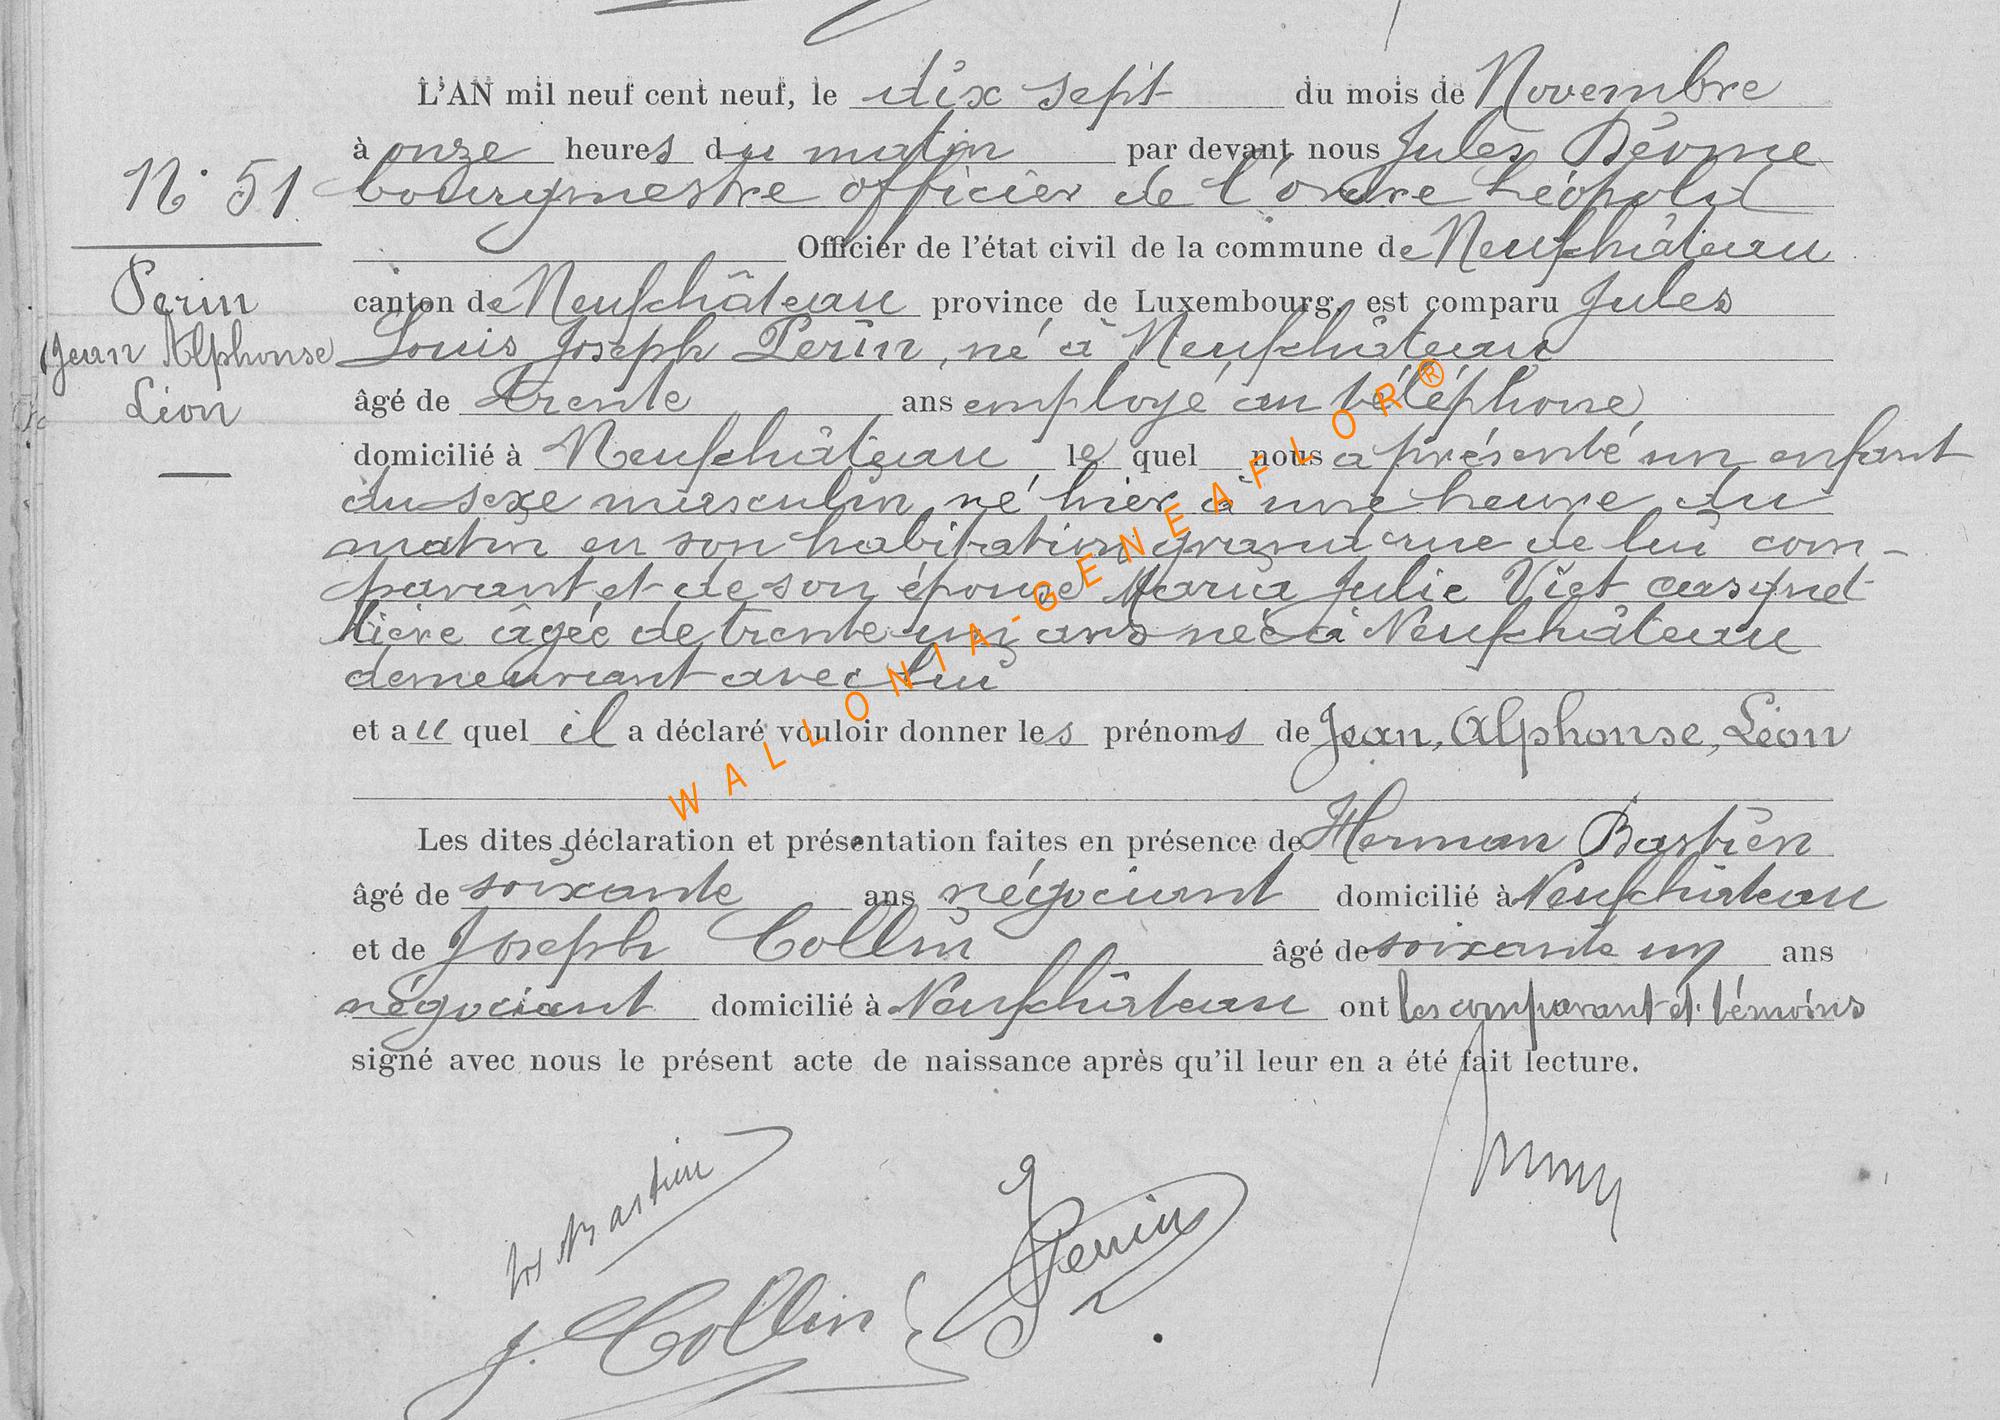 L'AN mil neuf cent neuf, le dix sept du mois de Novembre
à onze heures du matin par devant nous Jules
N° 51 bourgmestre officier de l'ordre Léopold
Officier de l'état civil de la commune de Neufchâteau
Perin canton de Neufchâteau province de Luxembourg, est comparu Jules
Jean Alphonse Louis Joseph Perin, né à Neufchâteau
Léon âgé de trente ans employé au téléphone
domicilié à Neufchâteau le quel nous a présenté un enfant
du sexe masculin né hier à une heure du
matin en son habitation grand rue de lui com-
parant et de son épouse Maria Julie Viet casquet
tière âgée de trente un ans née à Neufchâteau
demeurant avec lui
et au quel il a déclaré vouloir donner les prénoms de Jean, Alphonse, Léon
Les dites déclaration et présentation faites en présence de Herman Bastien
âgé de soixante ans négociant domicilié à Neufchâteau
et de Joseph Collin âgé de soixante un ans
négociant domicilié à Neufchâteau ont les comparant et témoins
signé avec nous le présent acte de naissance après qu'il leur en a été fait lecture.
Bastien
J. Perin
J. Collin
WALLONIA-GENEAFLOR®